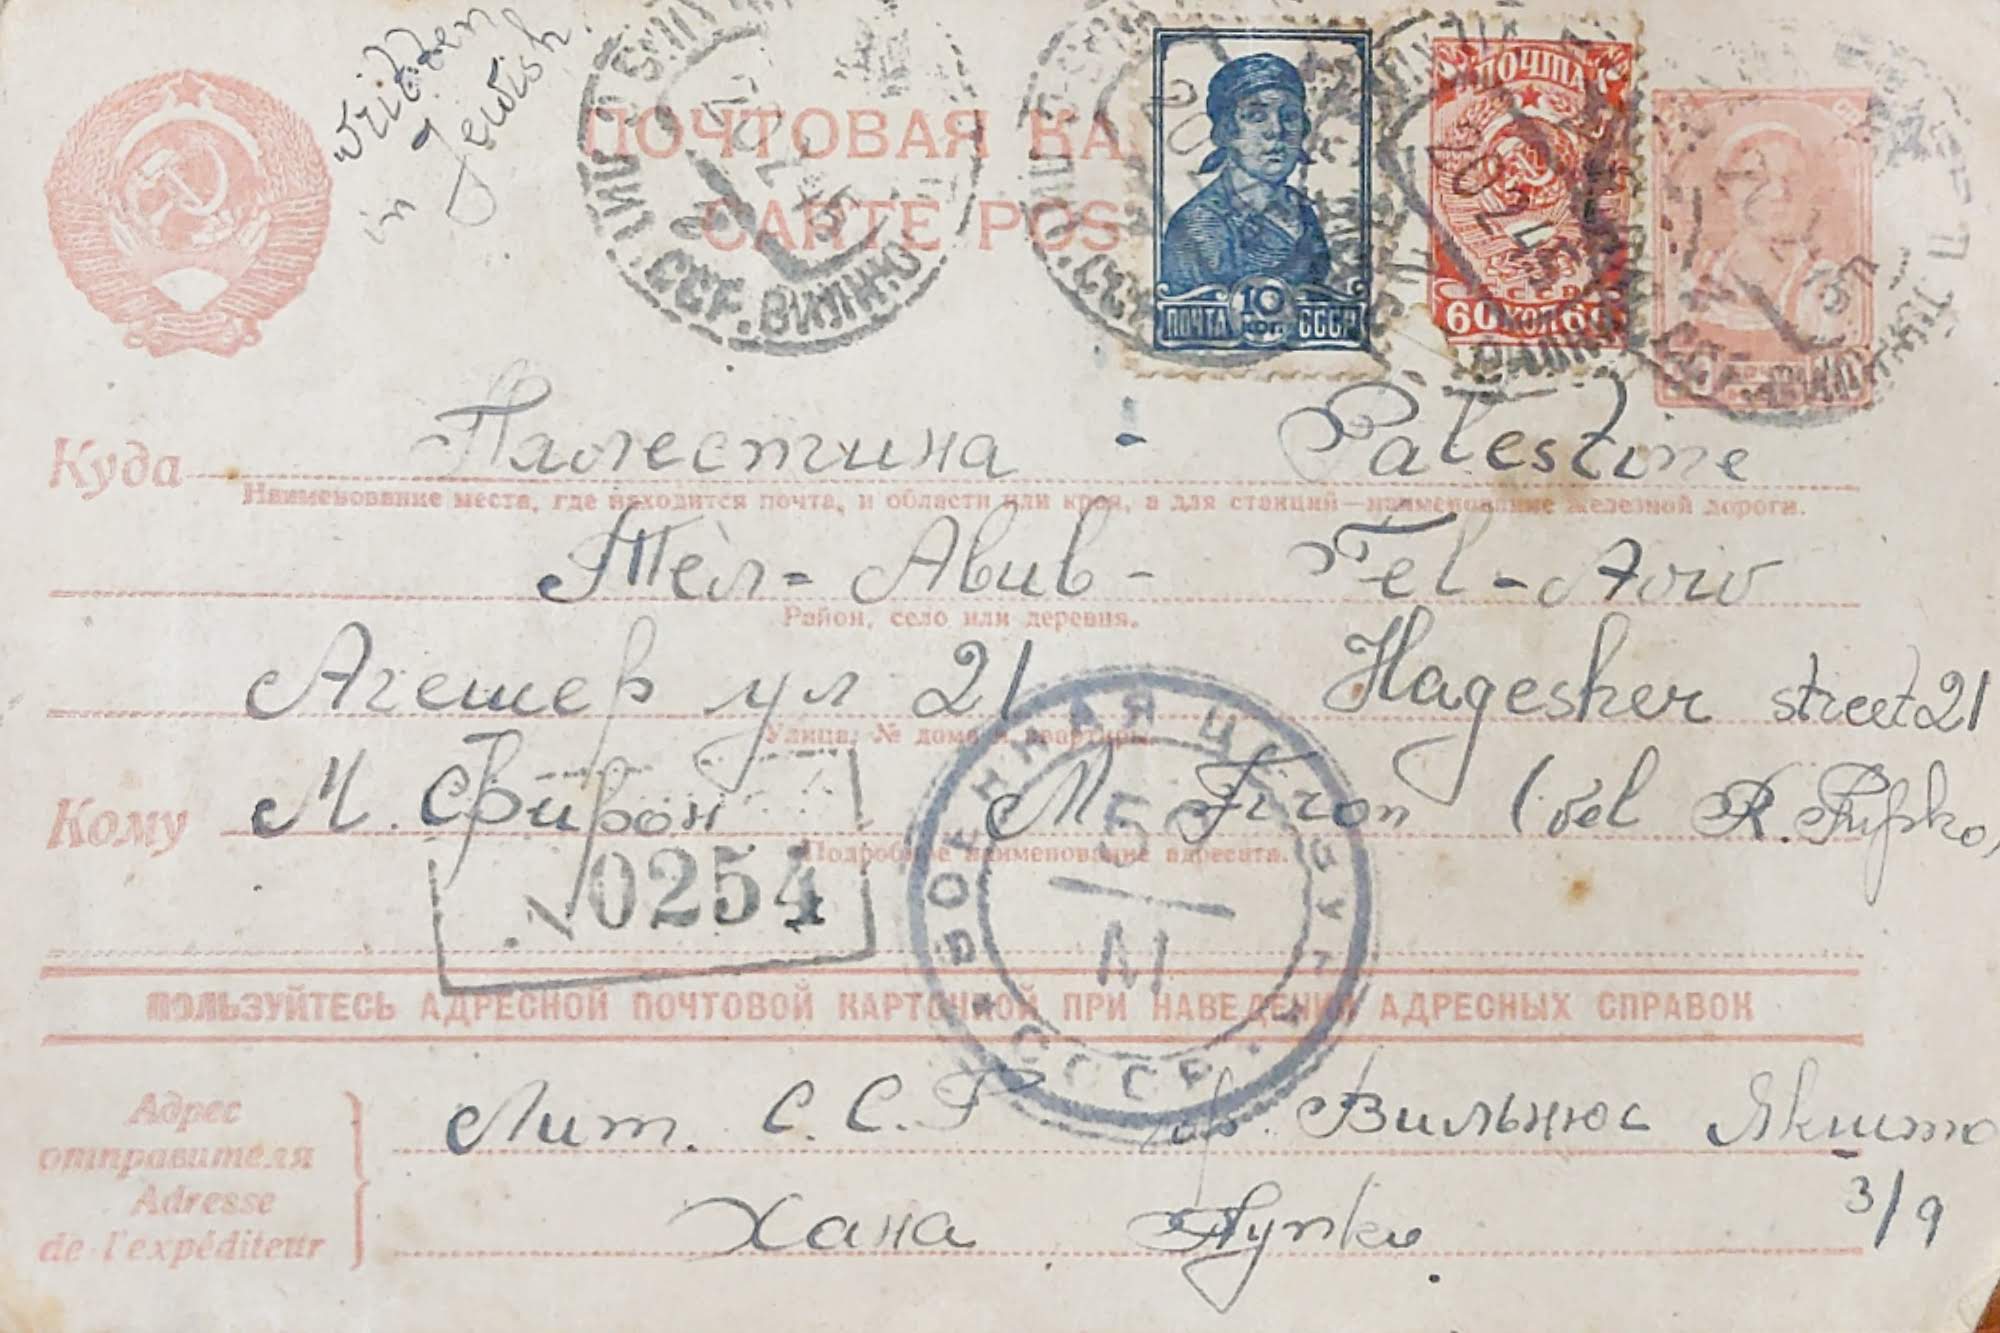 written
in Jewish.
ПОЧТОВАЯ КА
CARTE POS
ПОЧТА 10 КОП СССР
ПОЧТА
СССР
60 КОП 60
20 2 45
СССР. ВИЛНЮ
Куда
Палестина - Palestine
Наименование места, где находится почта, и области или края, а для станций—наименование железной дороги.
Тел-Авив - Tel-Aviv
Район, село или деревня.
Агешер ул 21 Hagesher street 21
Улица, № дома и квартиры.
Кому
М. Фирон M. Firon (bel R. Pupko)
Подробное наименование адресата.
№ 0254
ВОЕННАЯ ЦЕНЗУРА СССР
ПОЛЬЗУЙТЕСЬ АДРЕСНОЙ ПОЧТОВОЙ КАРТОЧКОЙ ПРИ НАВЕДЕНИИ АДРЕСНЫХ СПРАВОК
Адрес
отправителя
Adresse
de l'expéditeur
Лит. С.С.Р гор. Вильнюс Якшто
3/9
Хана Пупко